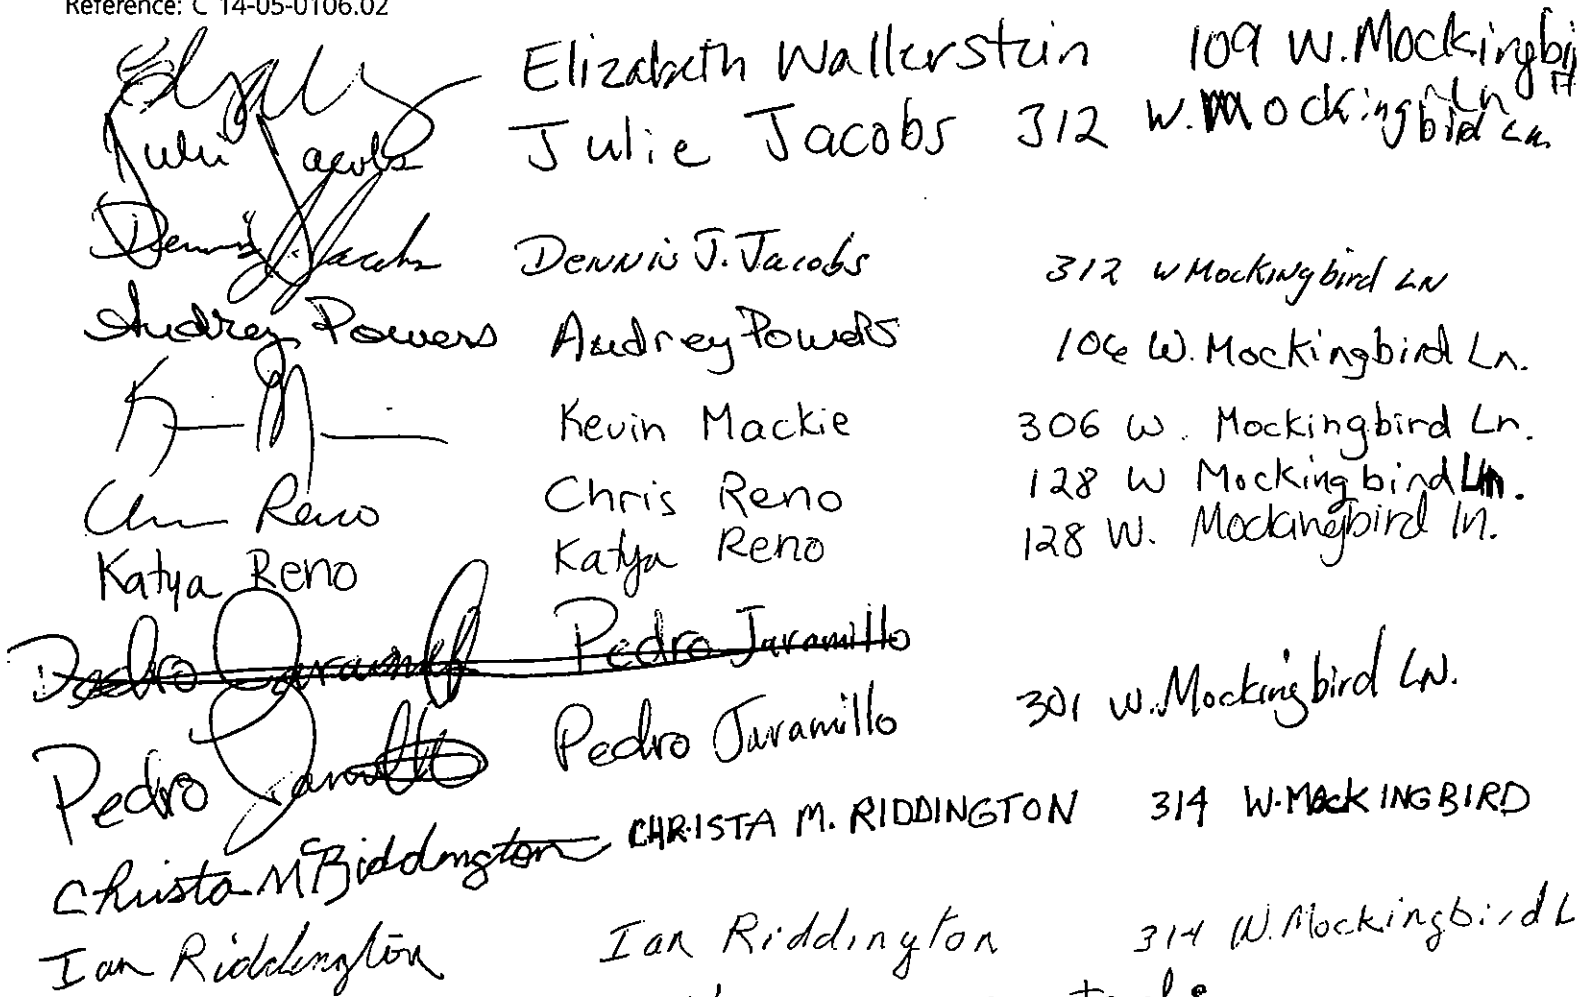 Reference: C 14-05-0106.02
Elizabeth Wallerstein 109 W. Mockingbi
Ln
Julie Jacobs Julie Jacobs 312 W. Mockingbird Ln.
Dennis J. Jacobs Dennis J. Jacobs 312 W Mockingbird LN
Audrey Powers Audrey Powers 106 W. Mockingbird Ln.
Kevin Mackie 306 W. Mockingbird Ln.
Chris Reno Chris Reno 128 W Mockingbird Ln.
Katya Reno Katya Reno 128 W. Mockingbird ln.
Pedro Jaramillo Pedro Jaramillo
Pedro Jaramillo Pedro Jaramillo 301 W. Mockingbird LN.
Christa M Riddington CHRISTA M. RIDDINGTON 314 W. MOCKINGBIRD
Ian Riddington Ian Riddington 314 W. Mockingbird L